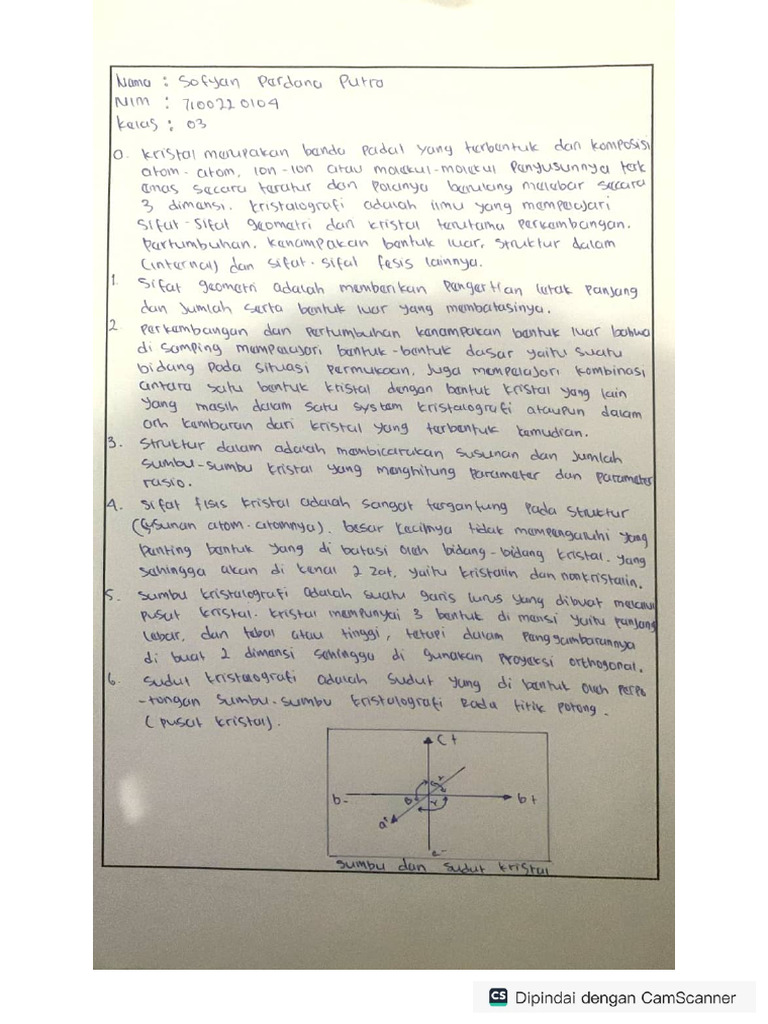 Nama : Sofyan Pardana Putra
NIM : 710022 0104
Kelas : 03
0. Kristal merupakan benda padat yang terbentuk dari komposisi
atom-atom, ion-ion atau molekul-molekul penyusunnya terk
emas secara teratur dan polanya berulang melebar secara
3 dimensi. Kristalografi adalah ilmu yang mempelajari
sifat-sifat geometri dari kristal terutama perkembangan,
pertumbuhan, kenampakan bentuk luar, struktur dalam
(internal) dan sifat-sifat fesis lainnya.
1. Sifat geometri adalah memberikan pengertian letak panjang
dan jumlah serta bentuk luar yang membatasinya.
2. Perkembangan dan pertumbuhan kenampakan bentuk luar bahwa
di samping mempelajari bentuk-bentuk dasar yaitu suatu
bidang pada situasi permukaan, juga mempelajari kombinasi
antara satu bentuk kristal dengan bentuk kristal yang lain
yang masih dalam satu system kristalografi ataupun dalam
arti kembaran dari kristal yang terbentuk kemudian.
3. Struktur dalam adalah membicarakan susunan dan jumlah
sumbu-sumbu kristal yang menghitung parameter dan parameter
rasio.
4. Sifat fisis kristal adalah sangat tergantung pada struktur
(susunan atom-atomnya). besar kecilnya tidak mempengaruhi yang
penting bentuk yang di batasi oleh bidang-bidang kristal. yang
sehingga akan di kenal 2 zat, yaitu kristalin dan nonkristalin.
5. Sumbu kristalografi adalah suatu garis lurus yang dibuat melalui
pusat kristal. kristal mempunyai 3 bentuk di mensi yaitu panjang
lebar, dan tebal atau tinggi, tetapi dalam penggambarannya
di buat 2 dimensi sehingga di gunakan proyeksi orthogonal.
6. Sudut kristalografi adalah sudut yang di bentuk oleh perpo
-tongan sumbu-sumbu kristalografi pada titik potong.
(pusat kristal).
c+
b-
b+
a+
c-
sumbu dan sudut kristal
CS Dipindai dengan CamScanner